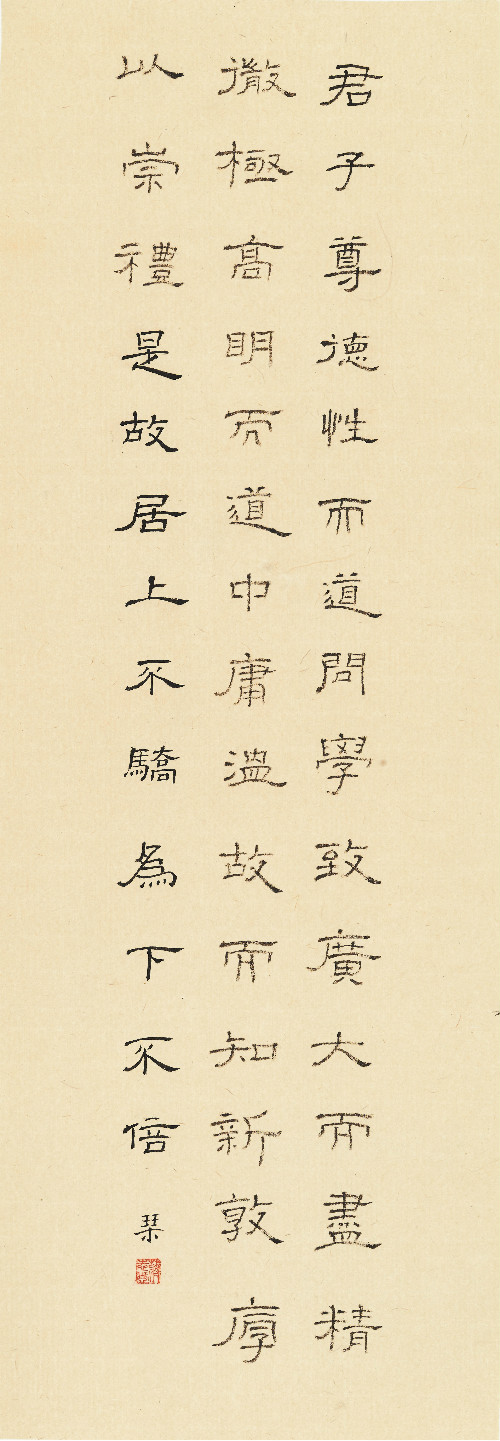 君子尊德性而道問學致廣大而盡精
微極高明而道中庸溫故而知新敦厚
以崇禮是故居上不驕為下不倍
琹